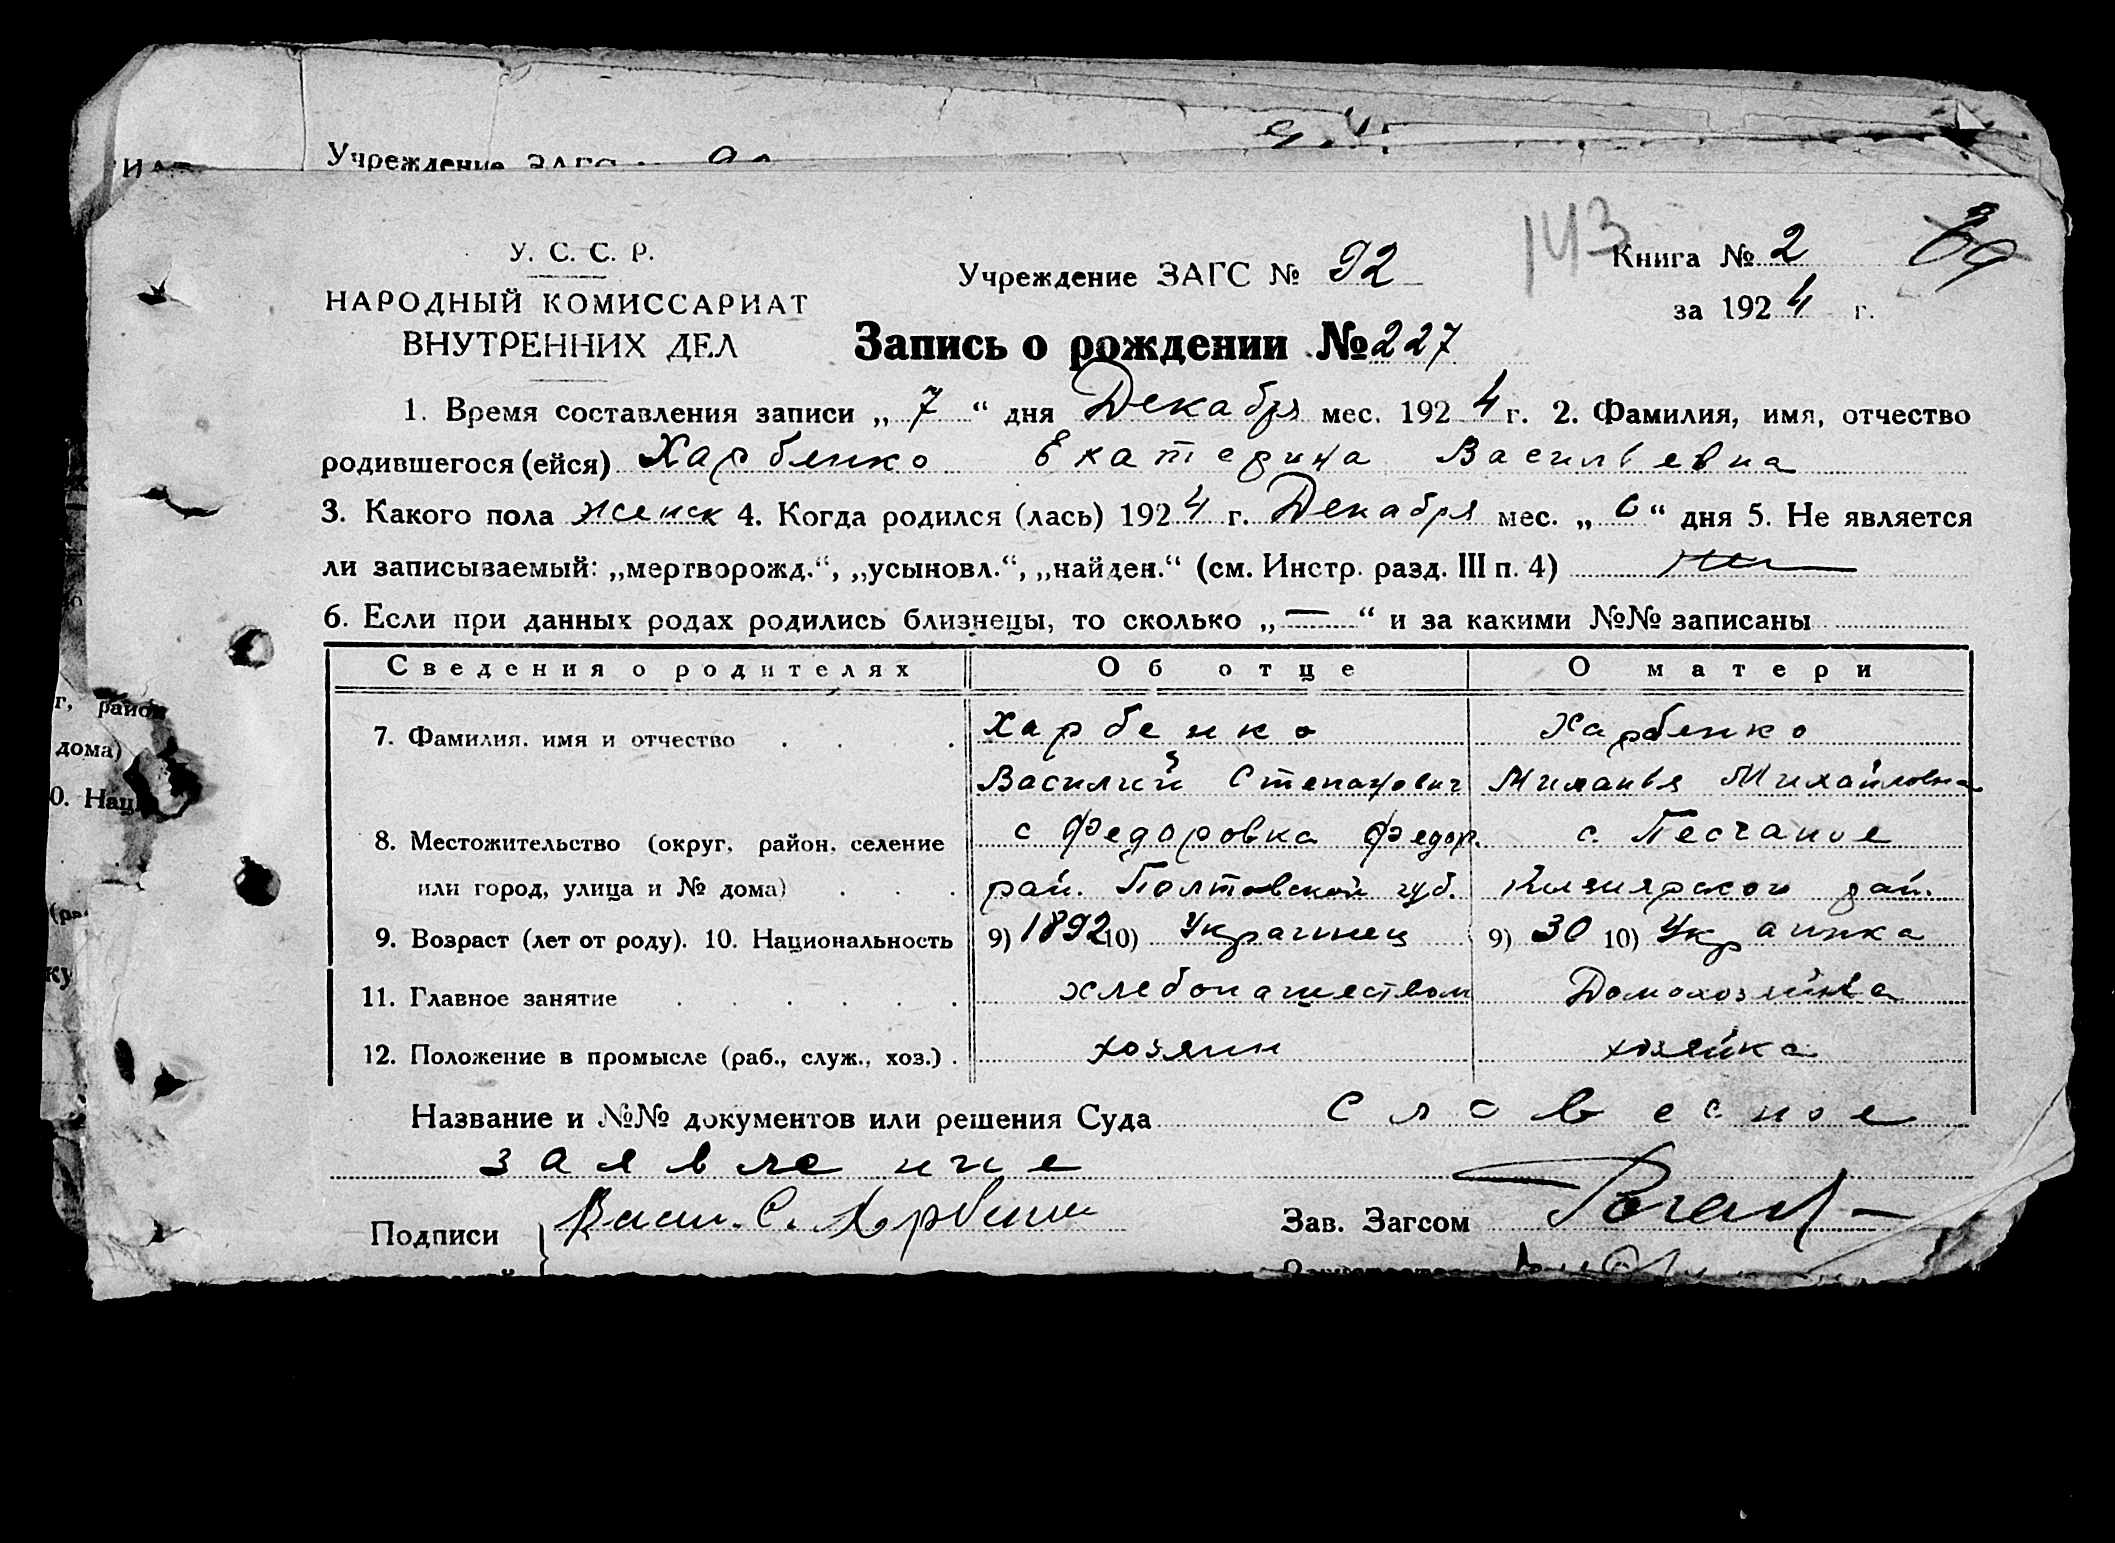 Учреждение ЗАГС
У. С. С. Р.
НАРОДНЫЙ КОМИССАРИАТ
ВНУТРЕННИХ ДЕЛ
Учреждение ЗАГС № 92
143
Книга № 2
за 1924 г.
Запись о рождении № 227
1. Время составления записи „ 7 “ дня Декабря мес. 1924 г. 2. Фамилия, имя, отчество
родившегося (ейся) Харбенко Екатерина Васильевна
3. Какого пола женск 4. Когда родился (лась) 1924 г. Декабря мес. „ 6 “ дня 5. Не является
ли записываемый: „мертворожд.“, „усыновл.“, „найден.“ (см. Инстр. разд. III п. 4)
6. Если при данных родах родились близнецы, то сколько „ — “ и за какими №№ записаны
Сведения о родителях Об отце О матери
7. Фамилия, имя и отчество Харбенко Харбенко
Василий Степанович Миланья Михайловна
8. Местожительство (округ, район, селение с Федоровка Федор. с. Песчаное
или город, улица и № дома) рай. Полтавской губ. рай.
9. Возраст (лет от роду). 10. Национальность 9) 1892 10) Украинец 9) 30 10) Украинка
11. Главное занятие хлебопашеством Домохозяйка
12. Положение в промысле (раб., служ., хоз.) хозяин хозяйка
Название и №№ документов или решения Суда Словесное
заявление
Подписи Васил. С. Харбенко Зав. Загсом
г, район
дома)
0. Нац